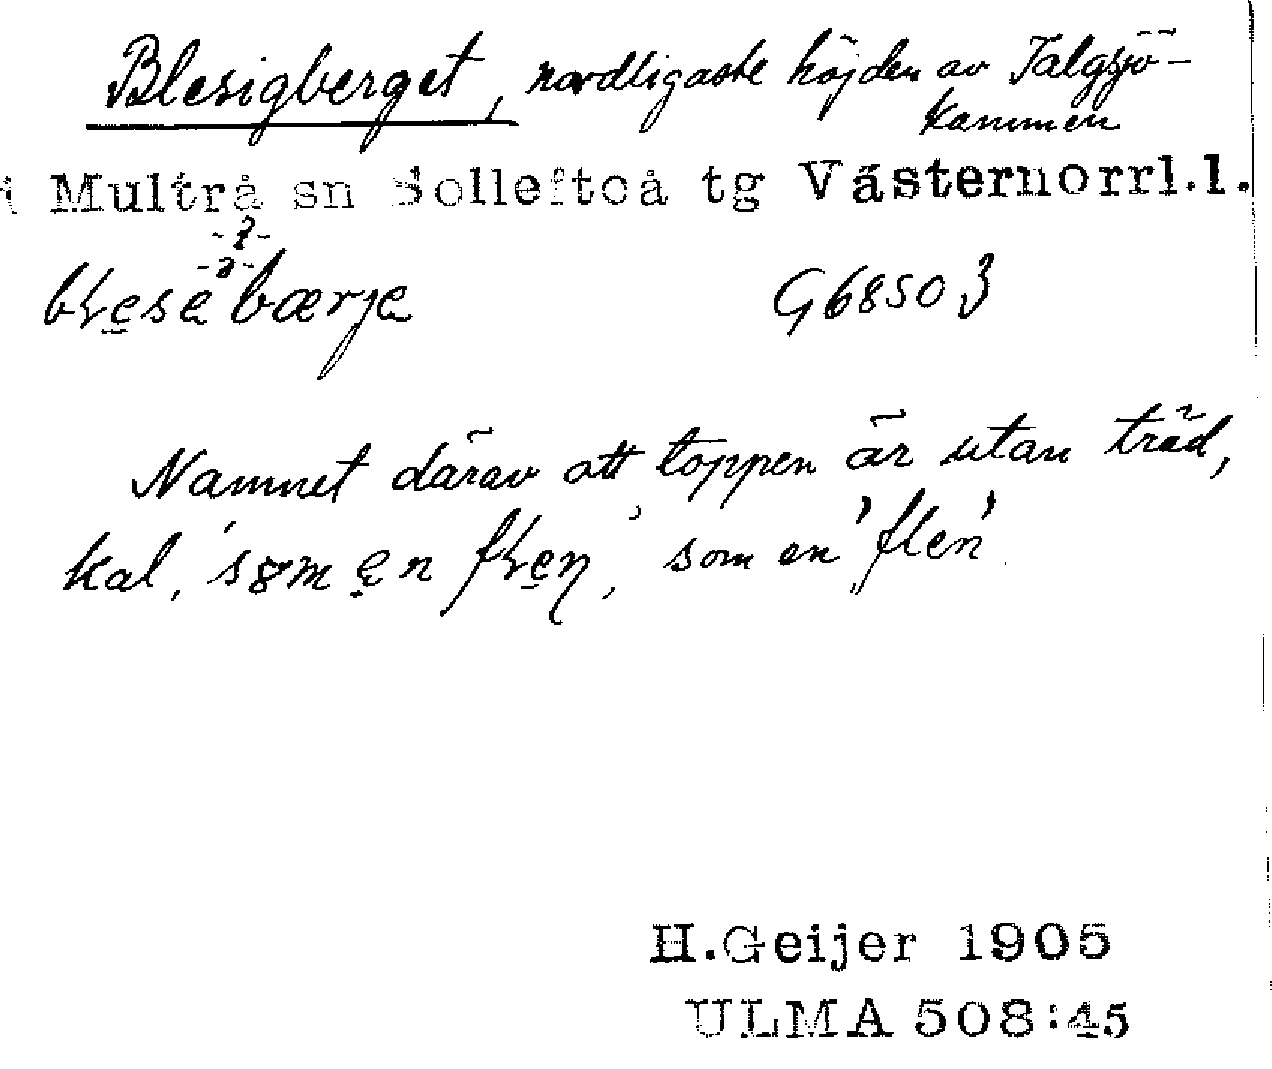 Blesigberget, nordligaste höjden av Talgsjö-
kammen
i Multrå sn Sollefteå tg Västernorrl.l.
-ɜ-
-a-
bɽesabærje G6850 3
Namnet därav att toppen är utan träd,
kal, 'sɷm en fɽeŋ', som en 'flen'
H.Geijer 1905
ULMA 508:45